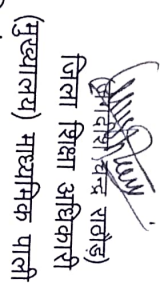 (जगदीश चन्द्र राठौड़)
जिला शिक्षा अधिकारी
(मुख्यालय) माध्यमिक पाली